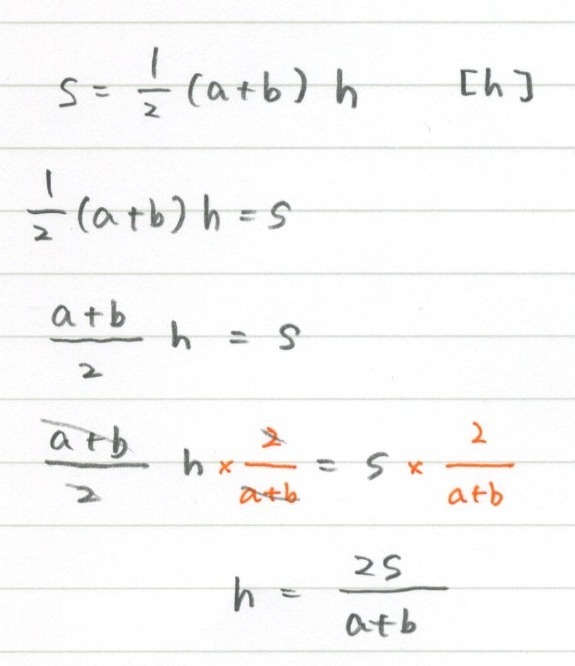 S = 1/2 (a+b) h [h]
1/2 (a+b) h = S
a+b/2 h = S
a+b/2 h × 2/a+b = S × 2/a+b
h = 2S/a+b